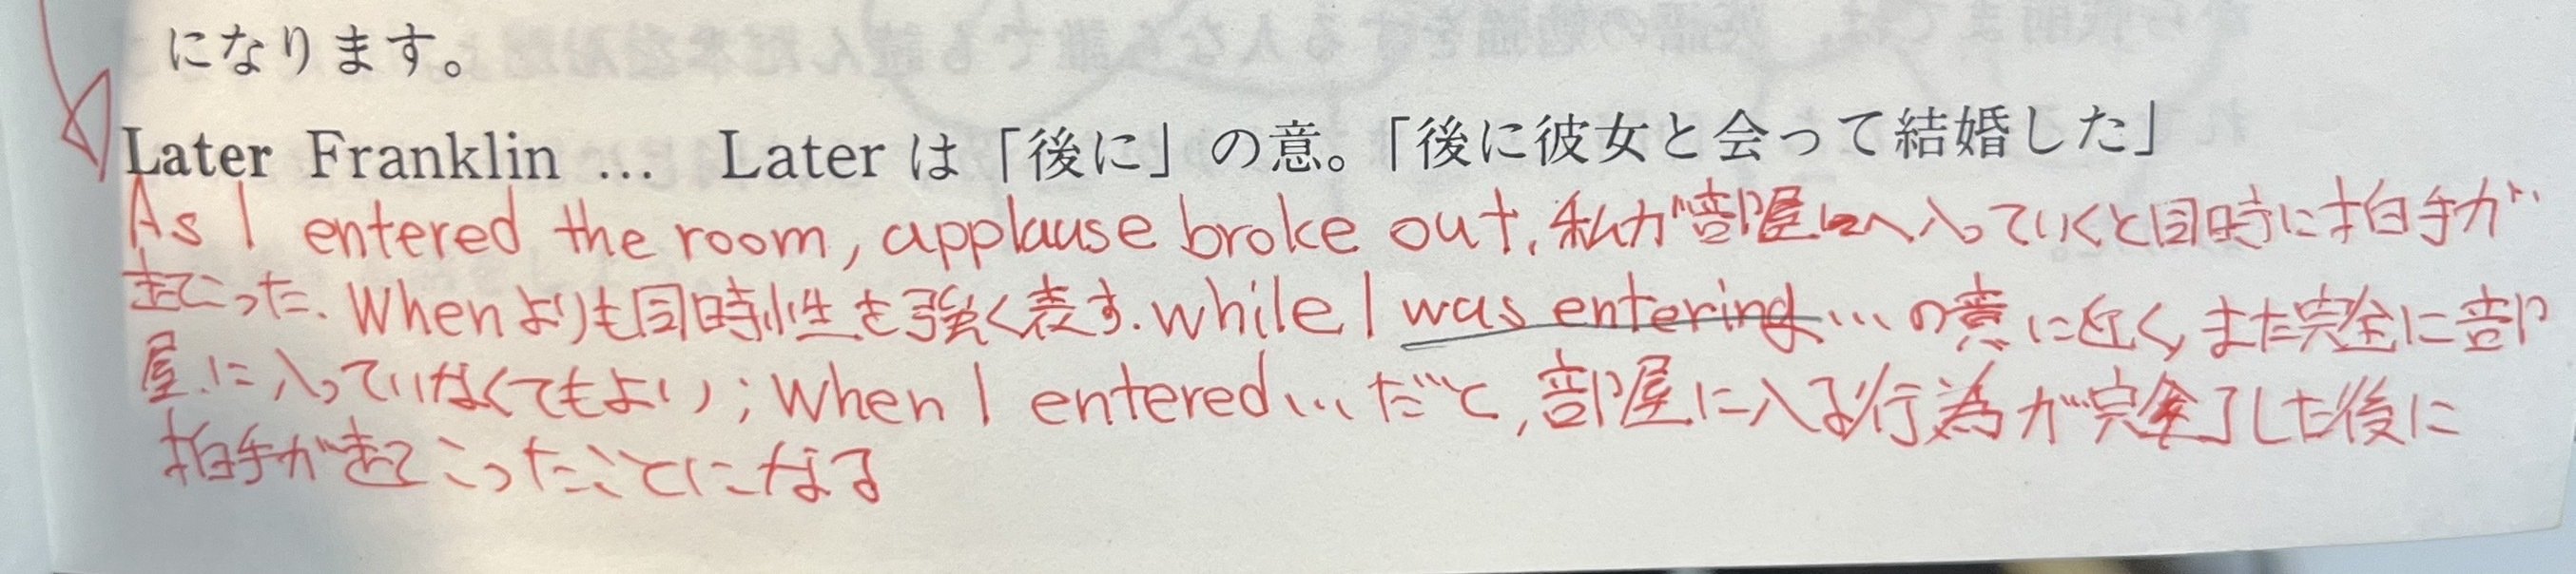 になります。
Later Franklin … Later は「後に」の意。「後に彼女と会って結婚した」
As I entered the room, applause broke out. 私が部屋へ入っていくと同時に拍手が
起こった. Whenよりも同時性を強く表す. while I was entering…の意に近く, また完全に部
屋に入っていなくてもよい; When I entered…だと, 部屋に入る行為が完全了した後に
拍手が起こったことになる